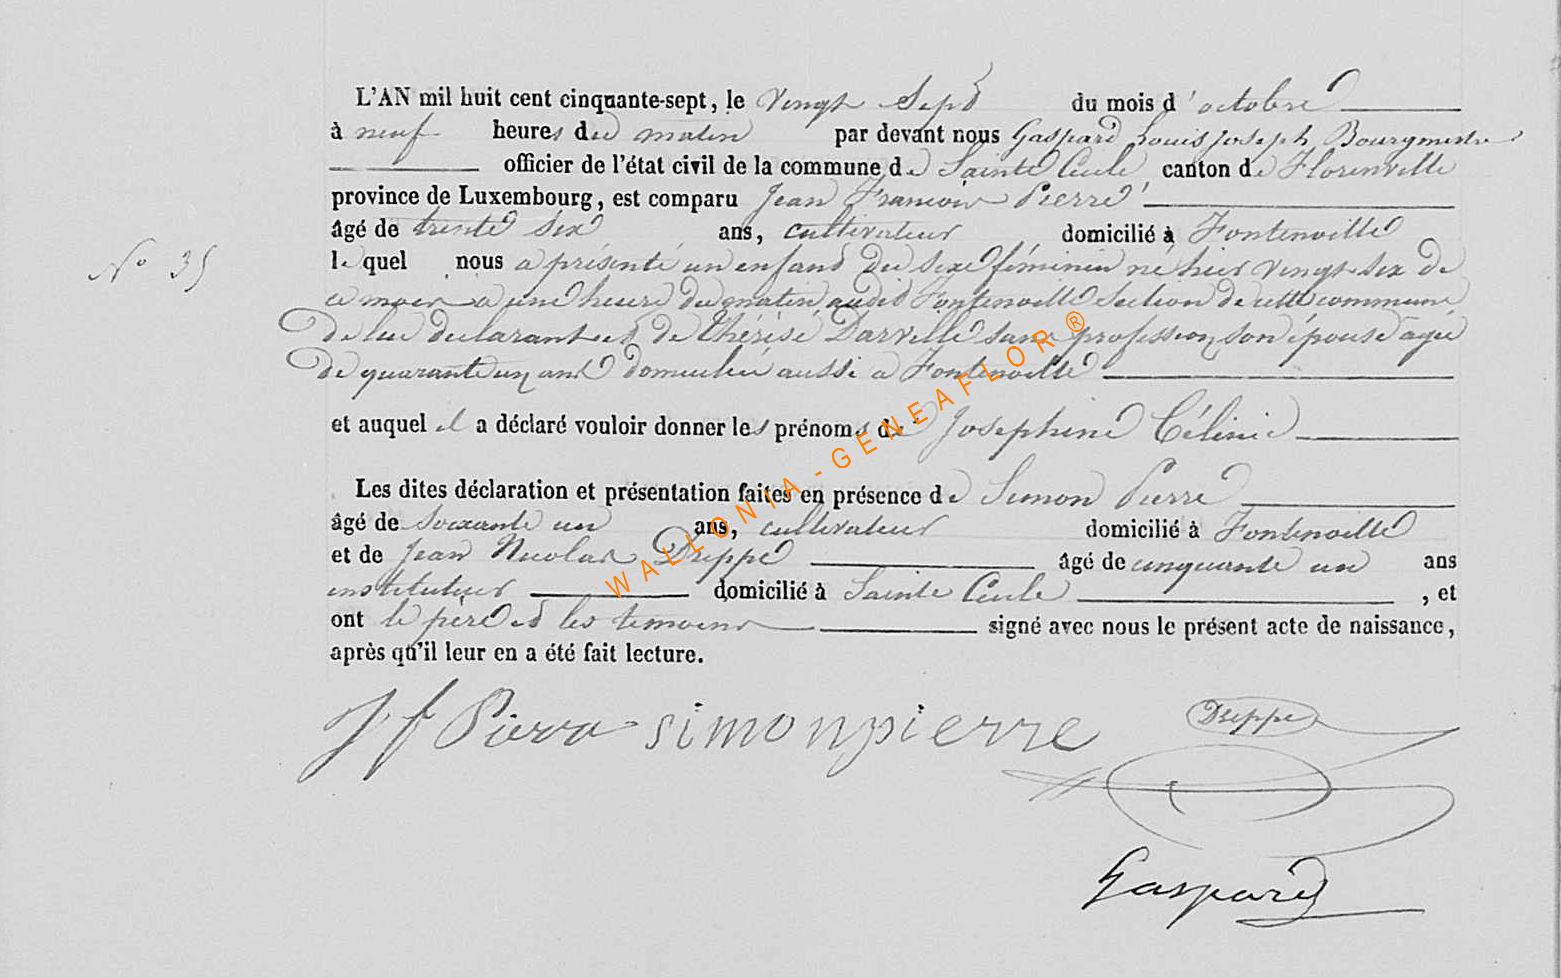 L'AN mil huit cent cinquante-sept, le vingt Sept du mois d'octobre
à neuf heures du matin par devant nous Gaspard Louis Joseph, Bourgmestre
officier de l'état civil de la commune de Sainte Cecile canton de Florenville
province de Luxembourg, est comparu Jean Francois Pierre
âgé de trente Six ans, cultivateur domicilié à Fontenoille
N° 35
le quel nous a présenté un enfant du sexe féminin né hier vingt-six de
ce mois a une heure du matin audit Fontenoille Section de cette commune
de lui declarant et de Thérèse Darville sans profession, son épouse agée
de quarante un ans domiciliée aussi a Fontenoille
et auquel il a déclaré vouloir donner les prénoms de Josephine Céline
Les dites déclaration et présentation faites en présence de Simon Pierre
âgé de soixante un ans, cultivateur domicilié à Fontenoille
et de Jean Nicolas Dreppe âgé de cinquante un ans
instituteur domicilié à Sainte Cecile , et
ont le père et les temoins signé avec nous le présent acte de naissance,
après qu'il leur en a été fait lecture.
J f Pierre simonpierre Dreppe
Gaspard
WALLONIA-GENEAFLOR®